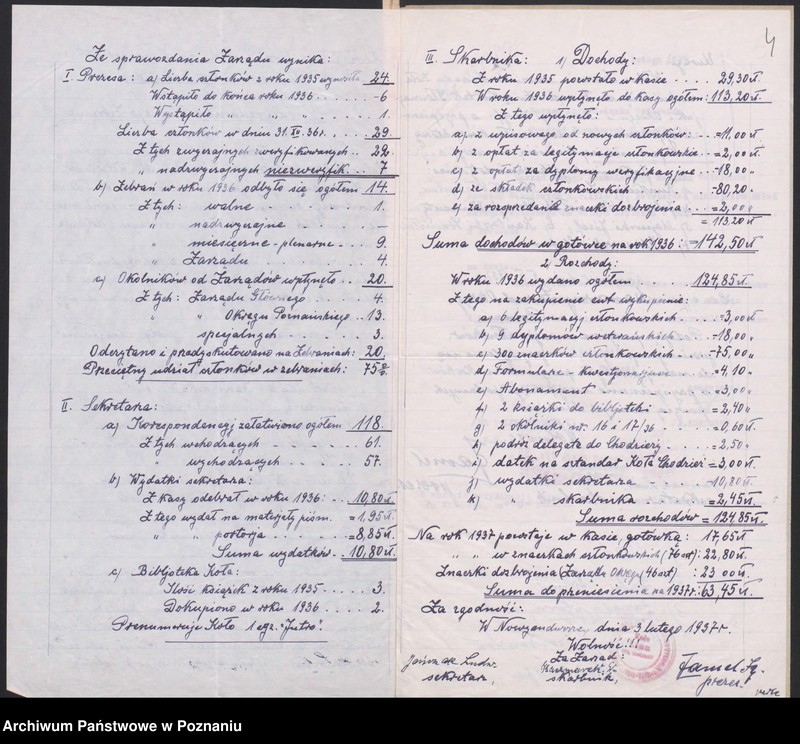 Ze sprawozdania Zarządu wynika:
I. Prezesa: a) Liczba członków z roku 1935 wynosiła 24.
Wstąpiło do końca roku 1936 . . . . -6
Wystąpiło „ „ „ „ . . . . 1.
Liczba członków w dniu 31.XII.36r. . . . . 29.
Z tych zwyczajnych zweryfikowanych . . 22.
„ nadzwyczajnych niezweryfik. . . 7
b) Zebrań w roku 1936 odbyło się ogółem 14.
Z tych: walne . . . . 1.
„ nadzwyczajne . . . . —
„ miesięczne - plenarne . . . 9.
„ Zarządu . . . . 4.
c) Okólników od Zarządów wpłynęło . . 20.
Z tych: Zarządu Głównego . . . . 4.
„ „ Okręgu Poznańskiego . . 13.
specjalnych . . . . 3.
Odczytano i przedyskutowano na Zebraniach: 20.
Przeciętny udział członków w zebraniach: 75%
II. Sekretarza:
a) Korespondencyj załatwiono ogółem 118.
Z tych wchodzących . . . . 61.
„ wychodzących . . . . 57.
b) Wydatki sekretarza:
Z kasy odebrał w roku 1936: . . 10,80 zł.
Z tego wydał na materjały piśm. = 1,95 zł.
„ „ „ portorja . . . = 8,85 zł.
Suma wydatków . . 10,80 zł.
c) Bibljoteka Koła:
Ilość książek z roku 1935 . . . . 3.
Dokupiono w roku 1936 . . . . 2.
Prenumeruje Koło 1 egz. "Jutro".
4
III. Skarbnika: 1) Dochody:
Z roku 1935 pozostało w kasie . . . . 29,30 zł.
W roku 1936 wpłynęło do kasy ogółem: 113,20 zł.
Z tego wpłynęło:
a) z wpisowego od nowych członków: . = 11,00 zł
b) z opłat za legitymacje członkowskie = 2,00 „
c) z opłat za dyplomy weryfikacyjne . . -18,00 „
d) ze składek członkowskich . . . . -80,20 .
e) za rozsprzedanie znaczki dozbrojenia . = 2,00 „
= 113,20 zł
Suma dochodów w gotówce na rok 1936 : = 142,50 zł
2. Rozchody:
W roku 1936 wydano ogółem . . . . 124,85 zł.
Z tego na zakupienie ewt wykupienie:
a) 6 legitymacyj członkowskich . . . = 3,00 zł
b) 9 dyplomów weterańskich . . . = 18,00 „
c) 300 znaczków członkowskich . . . = 75,00 „
d) Formularze - kwestjonarjusze . . . = 4,10 „
e) Abonament . . . . = 3,00 „
f) 2 książki do bibljoteki . . . . = 2,40 „
g) 2 okólniki nr. 16 i 17/36 . . . = 0,60 zł
h) podróż delegata do Chodzieży . . . = 2,50 „
i) datek na sztandar Koła Chodzież = 3,00 zł.
j) wydatki sekretarza . . . . 10,80 zł.
k) „ skarbnika . . . . = 2,45 zł.
Suma rozchodów = 124,85 zł.
Na rok 1937 pozostaje w kasie, gotówką: 17,65 zł
„ „ w znaczkach członkowskich (76 szt): 22,80 zł.
Znaczki dozbrojenia Zarządu Okręgu (46 szt) : 23,00 zł.
Suma do przeniesienia na 1937 r: 63,45 zł.
Za zgodność:
W Nowymdworze, dnia 3 lutego 1937 r.
Wolność!!
Za Zarząd:
sekretarz,
skarbnik,
prezes
Archiwum Państwowe w Poznaniu